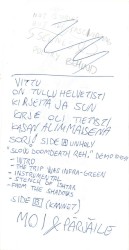 VITTU
ON TULLU HELVETISTI
KIRJEITÄ JA SUN
KIRJE OLI TIETYSTI
KASAN ALIMMAISENA
SORI! SIDE A UNHOLY
"SLOW DOOMDEATH REH." DEMO
- INTRO
- THE TRIP WAS INFRA-GREEN
- INSTRUMENTAL
- FROM THE SHADOWS
SIDE B (KANNET)
MOI & PÄRJÄILE